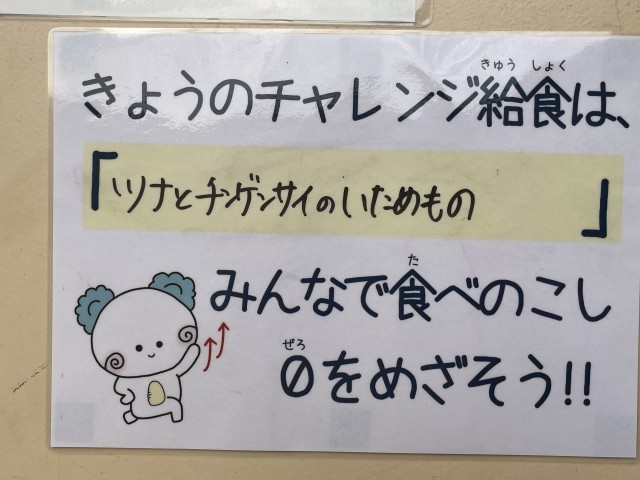 きょうのチャレンジ給食は、
きゅう しょく
「ツナとチンゲンサイのいためもの」
みんなで食べのこし
た
0をめざそう!!
ぜろ